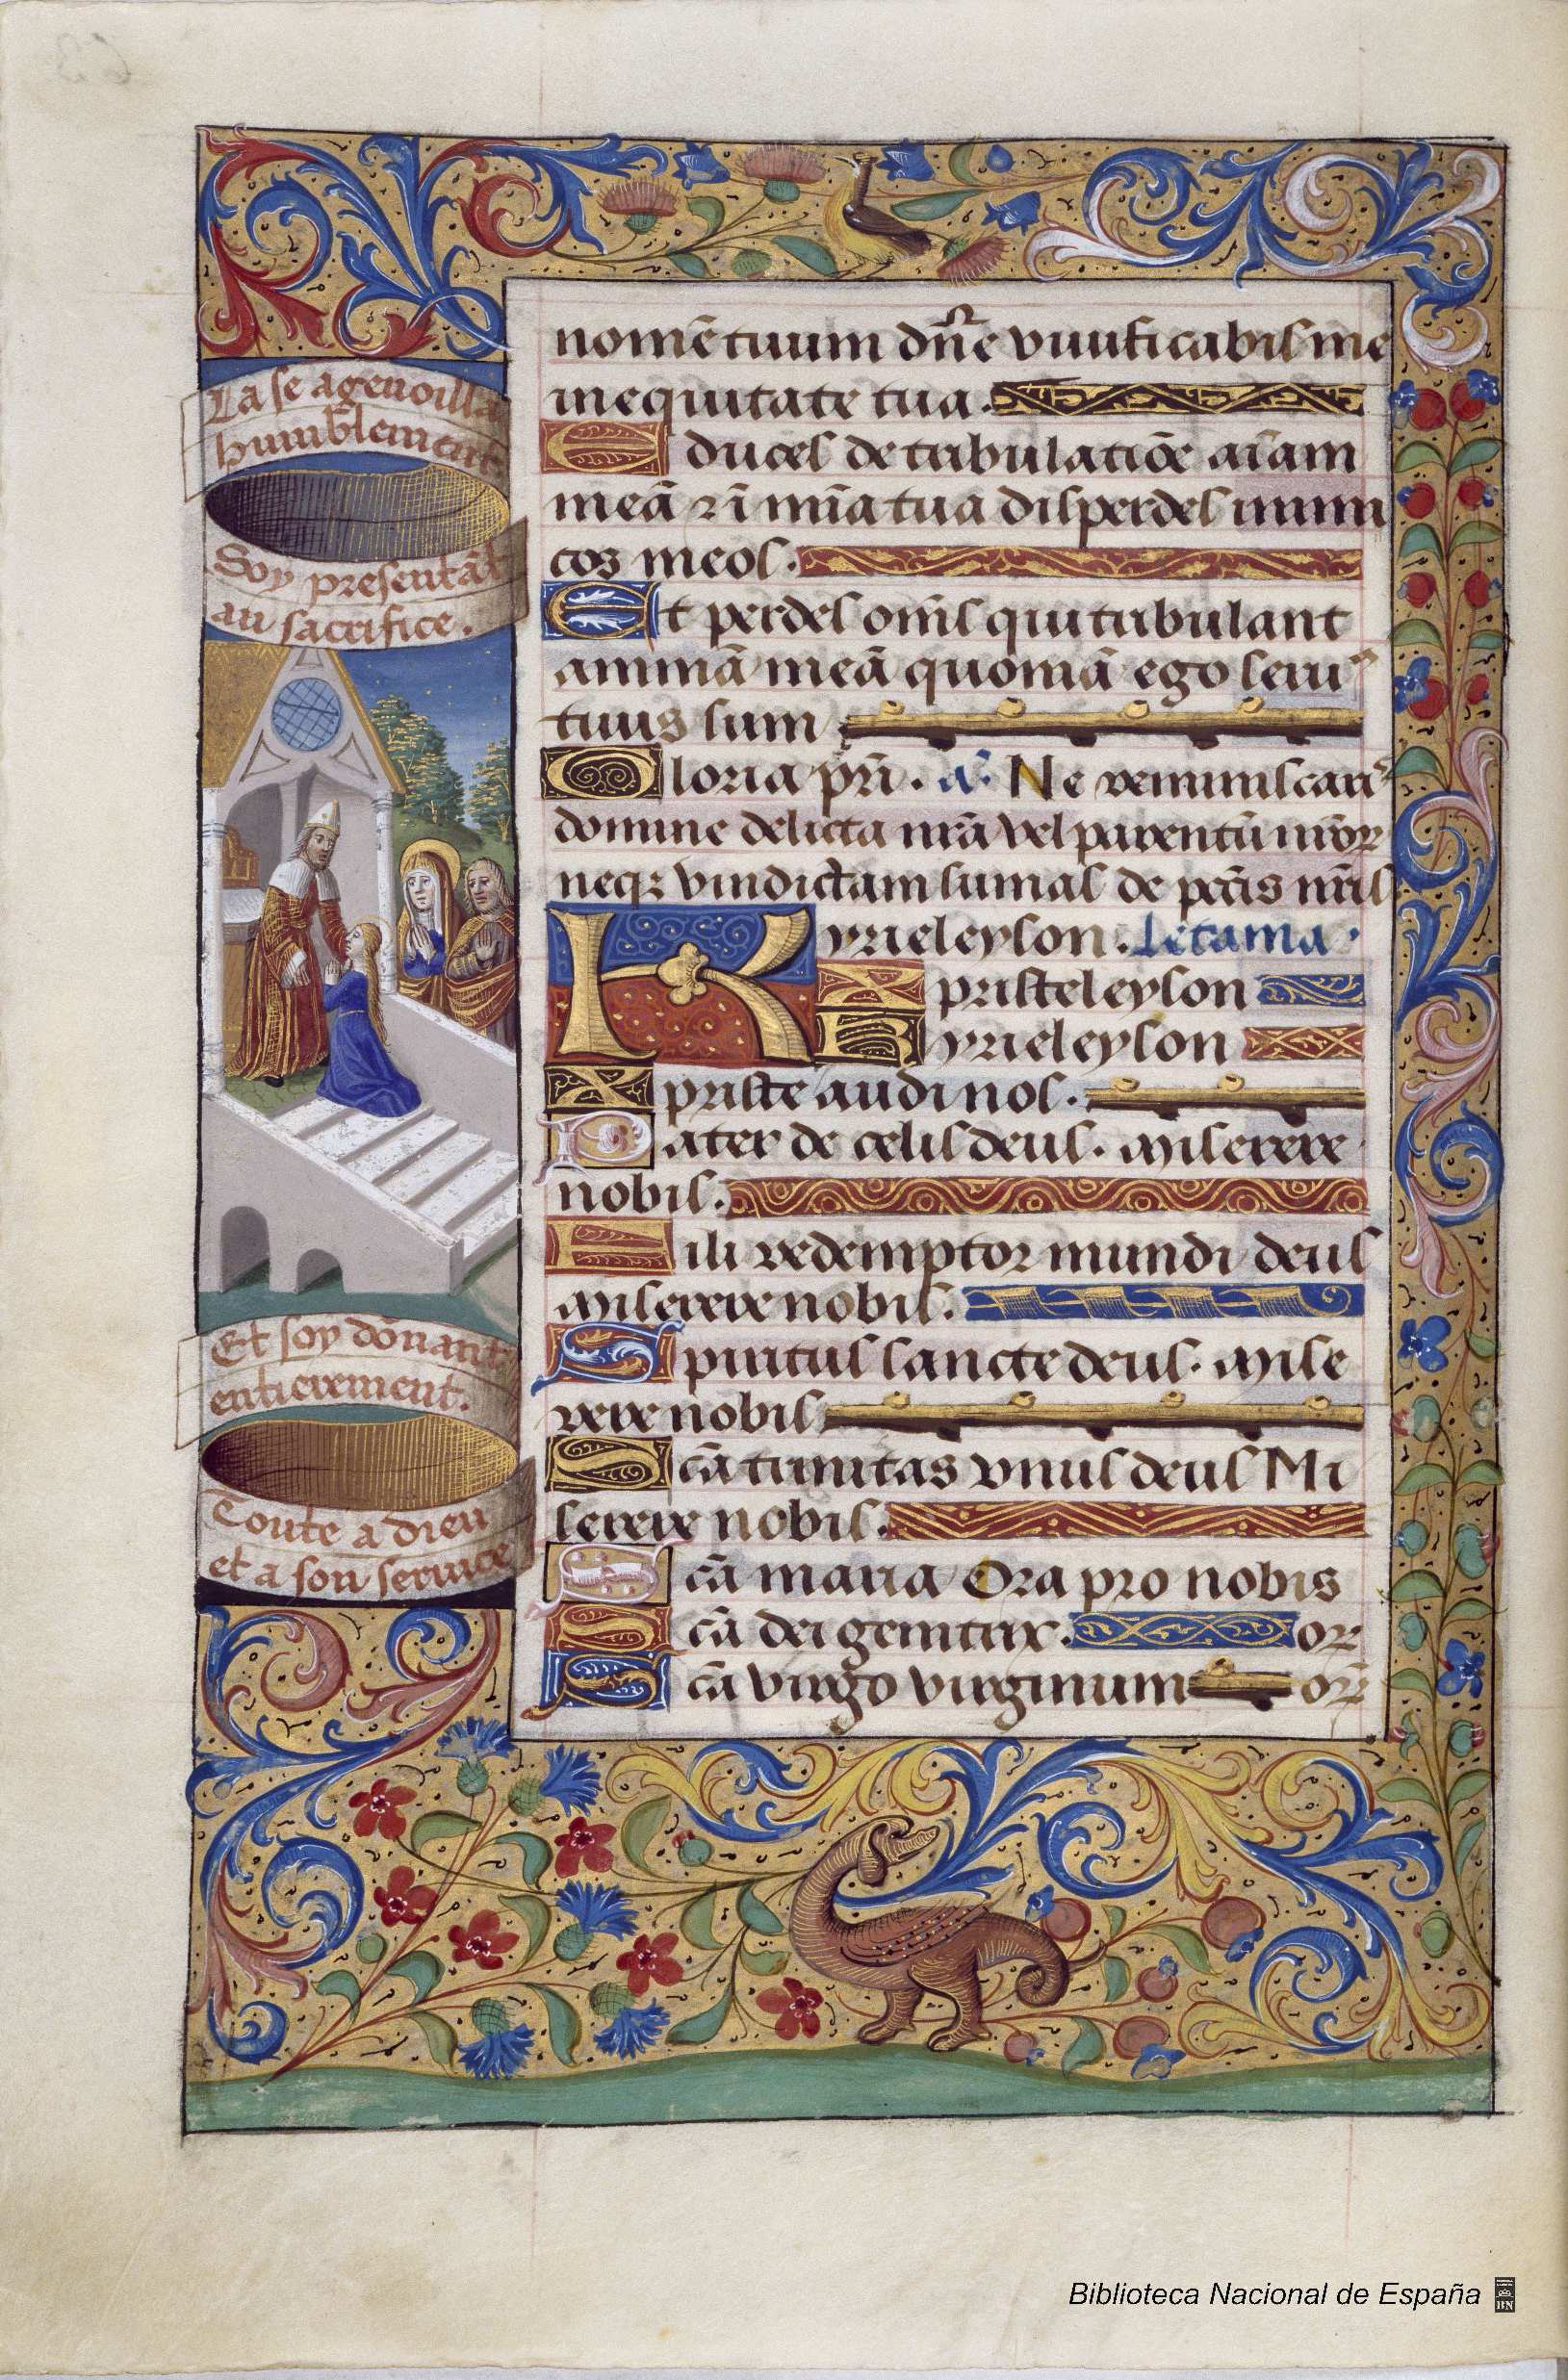 La se agenoilla
humblement
Soy presentāt
au sacrifice.
Et soy dōnant
entierement.
Toute a dieu
et a son seruice
nomē tuum dn̄e viuificabis me
in equitate tua.
Educes de tribulatiōe aīam
meā ⁊ ī mīa tua disperdes inimi
cos meos.
Et perdes om̄s qui tribulant
animā meā quoniā ego seruꝰ
tuus sum
Gloria pr̄i. a. Ne reminiscaris
domine delicta nrā vel parentū nr̄oꝝ
neqꝫ vindictam sumas de pctīs nr̄is
Kyrieleyson. Letania.
Xpristeleyson
Kyrieleyson
Xpriste audi nos.
Pater de celis deus. Miserere
nobis.
Fili redemptor mundi deus
Miserere nobis.
Spiritus sancte deus. Mise
rere nobis
Scā trinitas vnus deus Mi
serere nobis.
Scā maria Ora pro nobis
Scā dei genitrix. or
Scā virgo virginum or
Biblioteca Nacional de España
BN